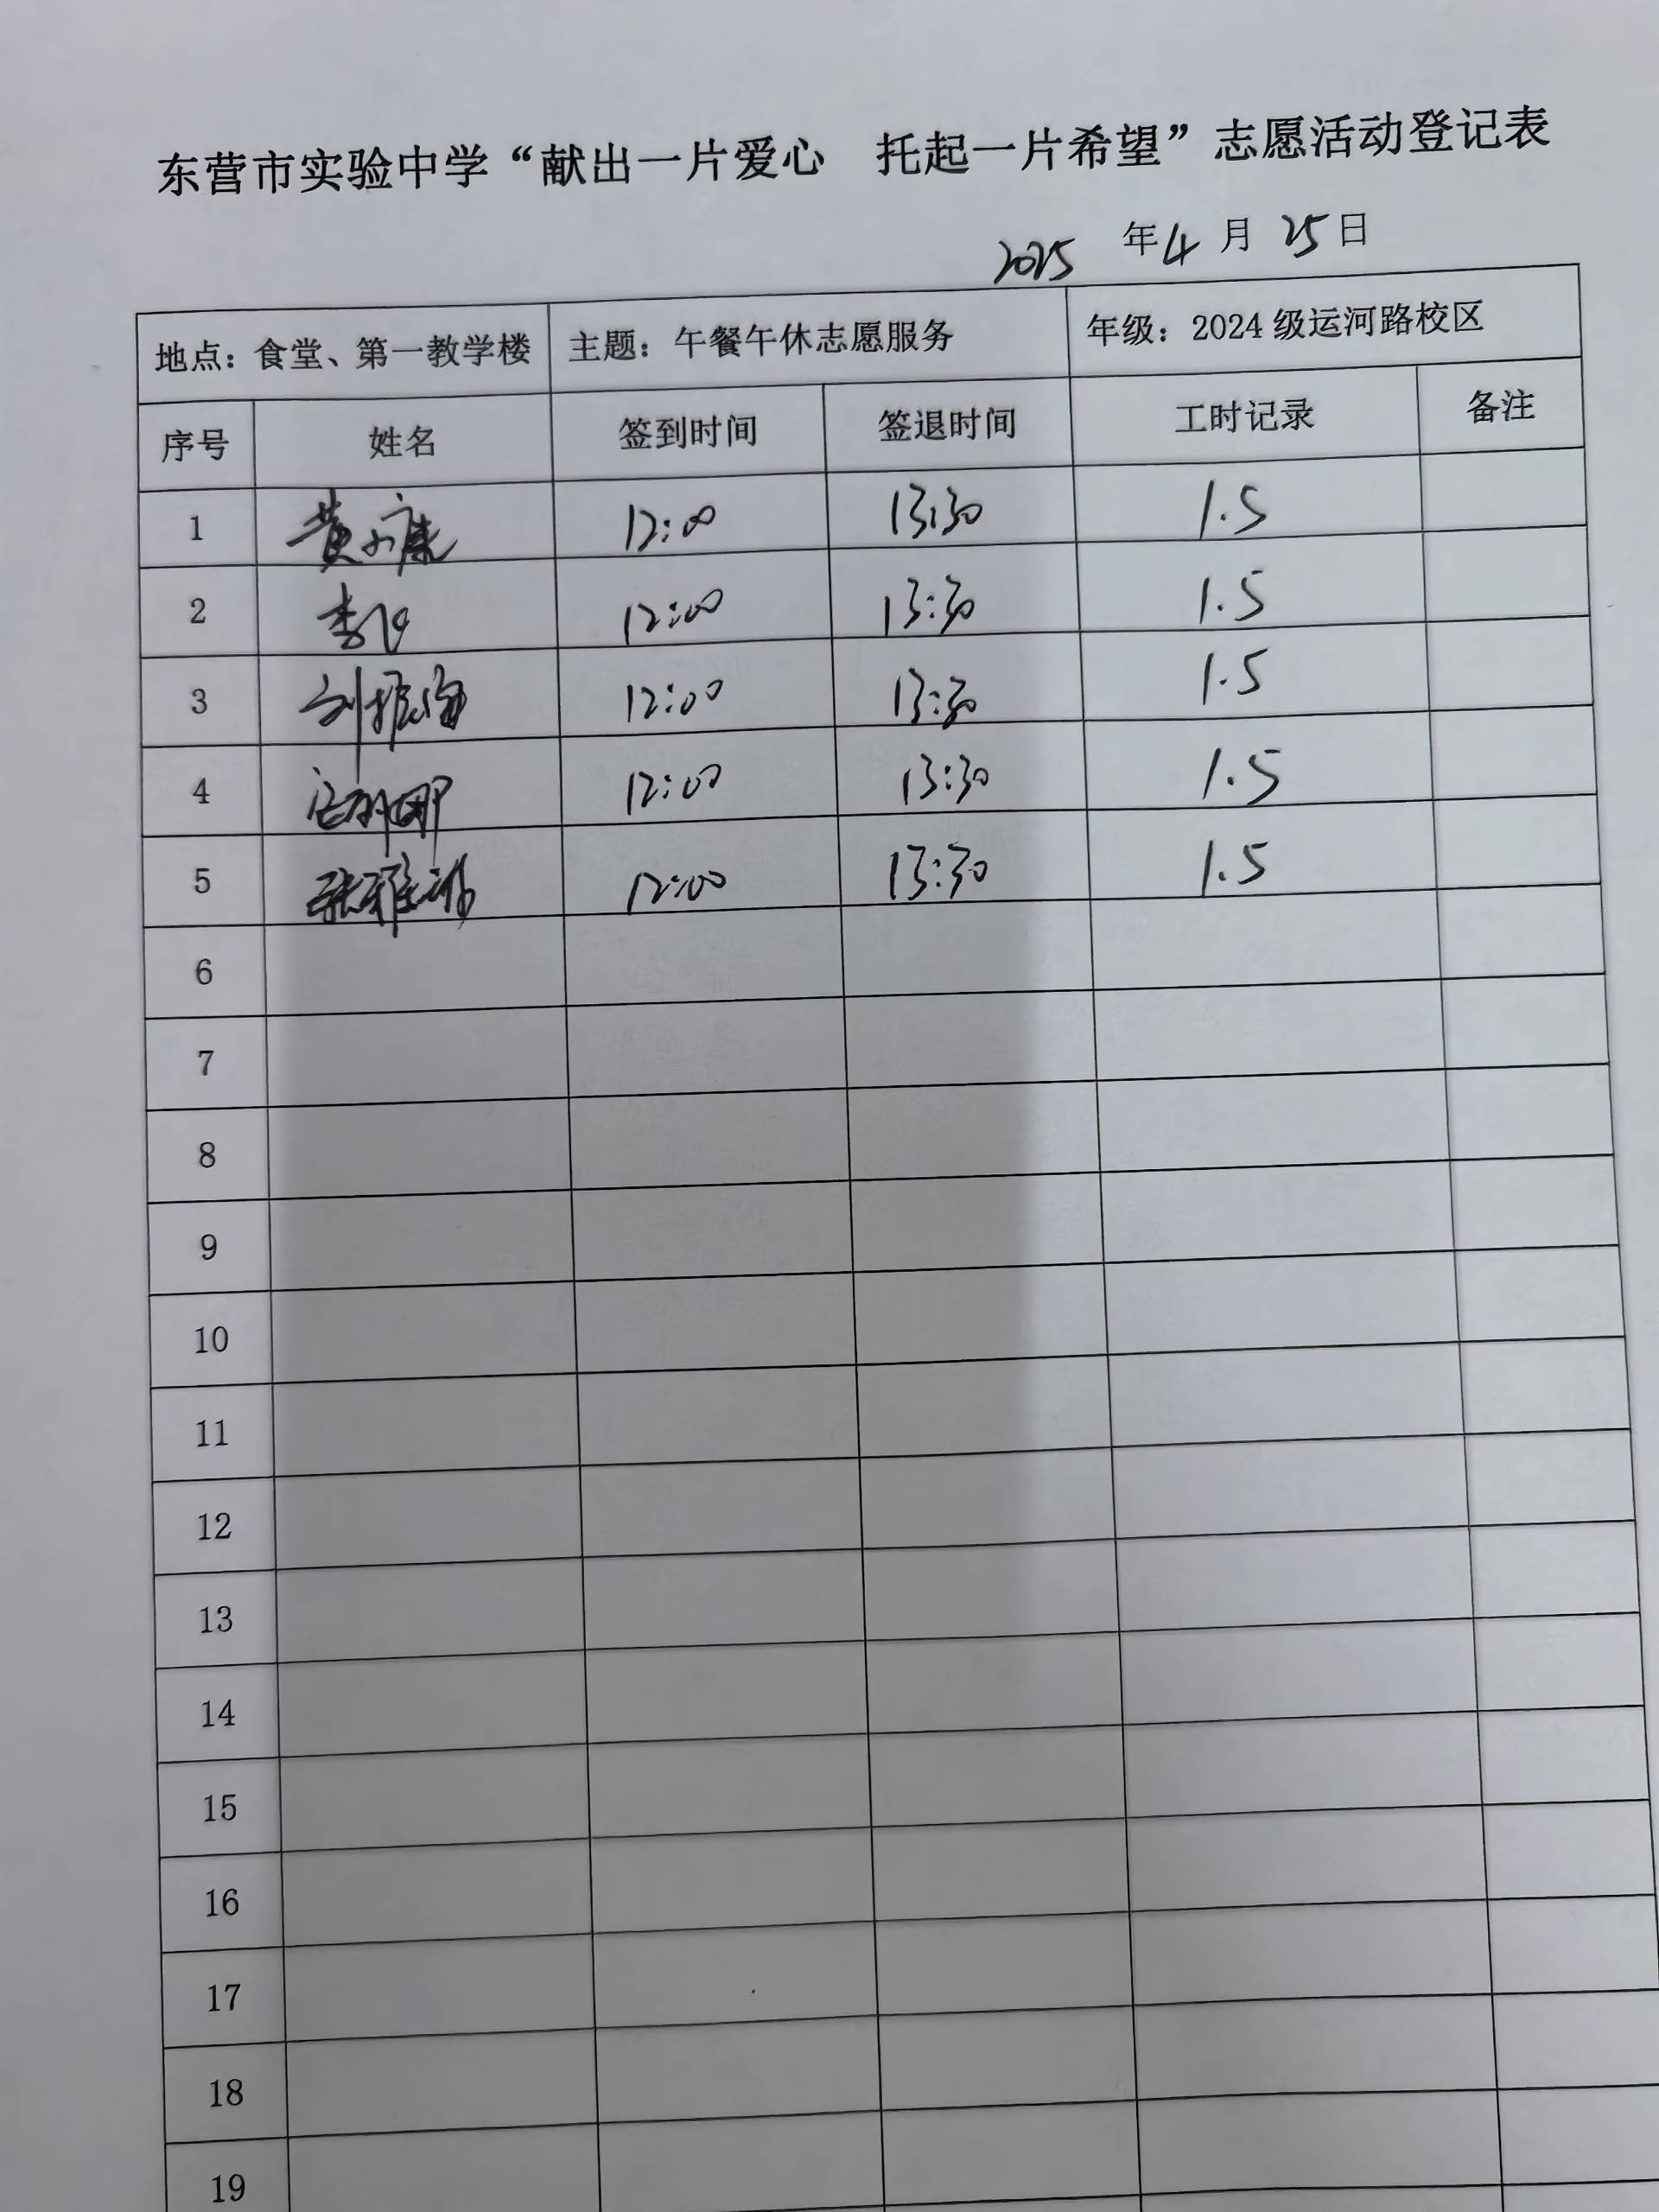 东营市实验中学“献出一片爱心 托起一片希望”志愿活动登记表
2025 年 4 月 25 日
地点：食堂、第一教学楼 主题：午餐午休志愿服务 年级：2024级运河路校区
序号 姓名 签到时间 签退时间 工时记录 备注
1 黄 康 12:00 13:30 1.5
2 李 12:00 13:30 1.5
3 刘振海 12:00 13:30 1.5
4 12:00 13:30 1.5
5 张雅 12:00 13:30 1.5
6
7
8
9
10
11
12
13
14
15
16
17
18
19